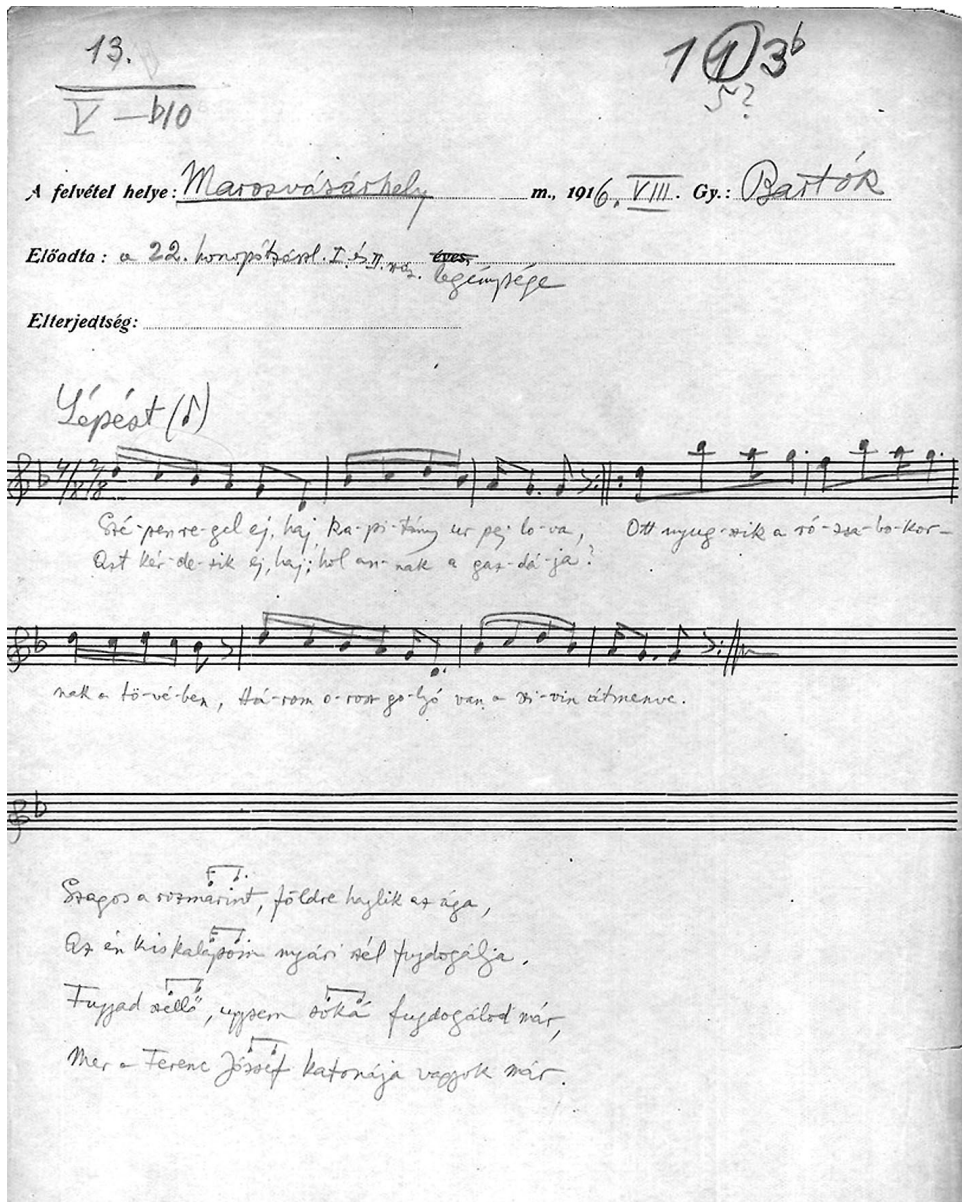 13.
V — b10
1 1 3b
5?
A felvétel helye: Marosvásárhely m., 1916. VIII. Gy.: Bartók
Előadta: a 22. I. és II. éves. legénysége
Elterjedtség:
Lépést
4/8 2/8
Szé-pen re-gel ej, haj ka-pi-tány ur pej lo-va, Ott nyug-szik a ró-zsa-bo-kor-
Azt kér-de-zik ej, haj; hol an-nak a gaz-dá-ja?
nak a tö-vé-ben, Há-rom o-rosz go-lyó van a szi-vin átmenve.
Szagos a rozmarint, földre hajlik az ága,
Az én kiskalapom nyári szél fujdogálja.
Fujjad szellő, ugysem soká fujdogálod már,
Mer a Ferenc József katonája vagyok már.